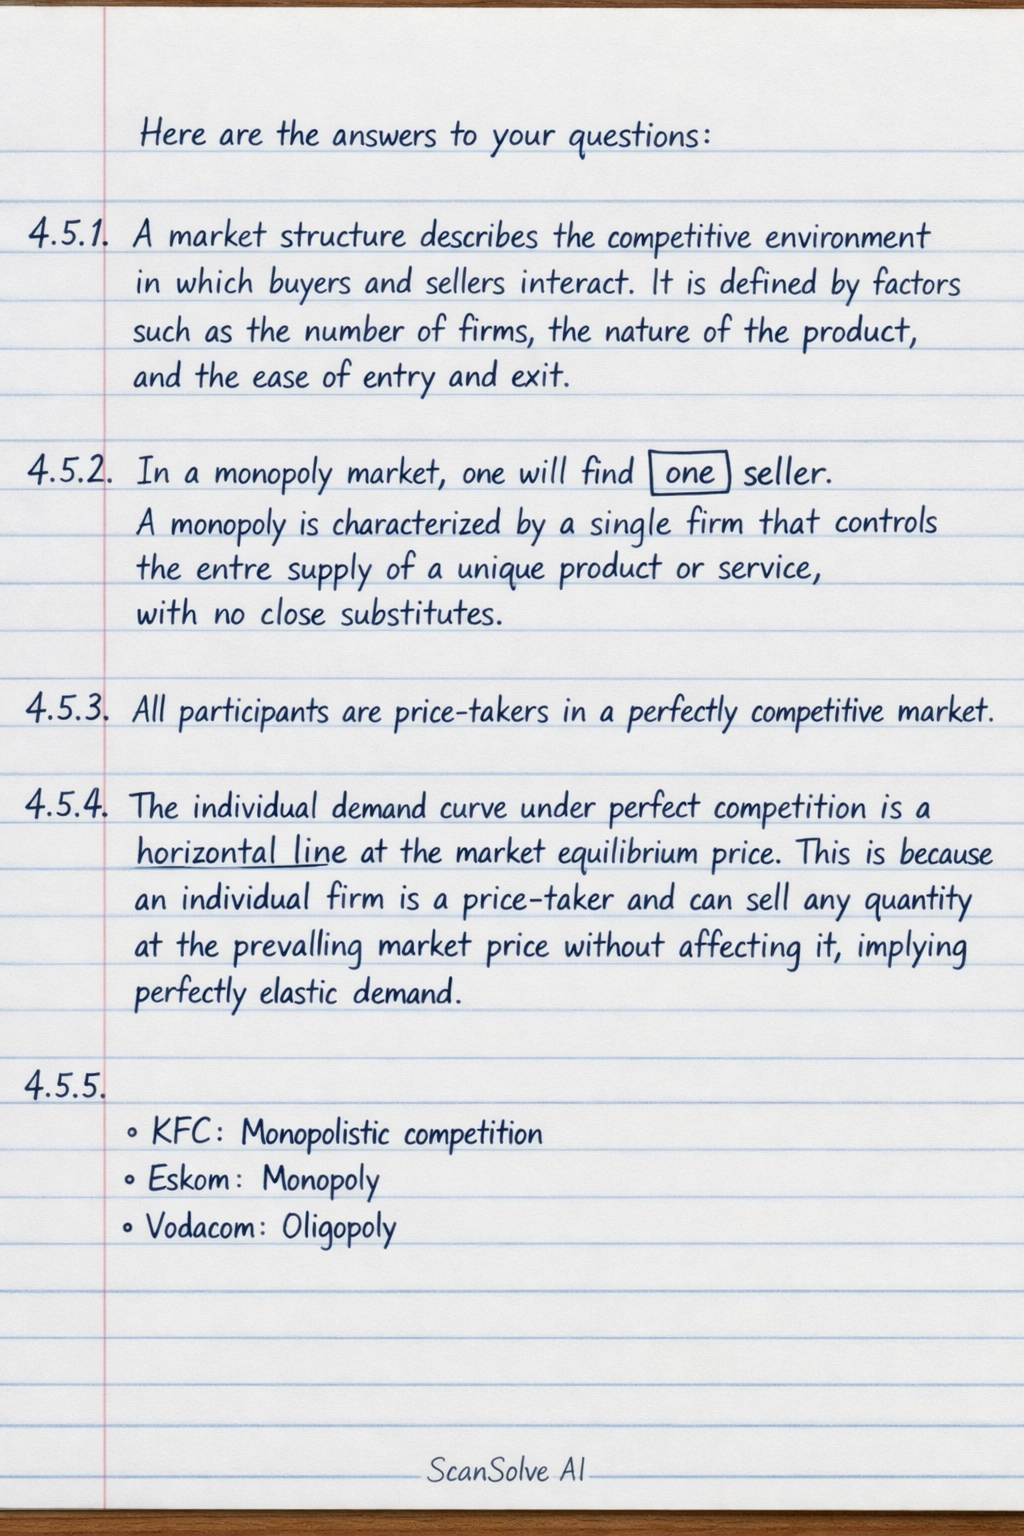 Here are the answers to your questions:
4.5.1. A market structure describes the competitive environment
in which buyers and sellers interact. It is defined by factors
such as the number of firms, the nature of the product,
and the ease of entry and exit.
4.5.2. In a monopoly market, one will find one seller.
A monopoly is characterized by a single firm that controls
the entre supply of a unique product or service,
with no close substitutes.
4.5.3. All participants are price-takers in a perfectly competitive market.
4.5.4. The individual demand curve under perfect competition is a
horizontal line at the market equilibrium price. This is because
an individual firm is a price-taker and can sell any quantity
at the prevalling market price without affecting it, implying
perfectly elastic demand.
4.5.5.
∘ KFC: Monopolistic competition
∘ Eskom: Monopoly
∘ Vodacom: Oligopoly
ScanSolve AI